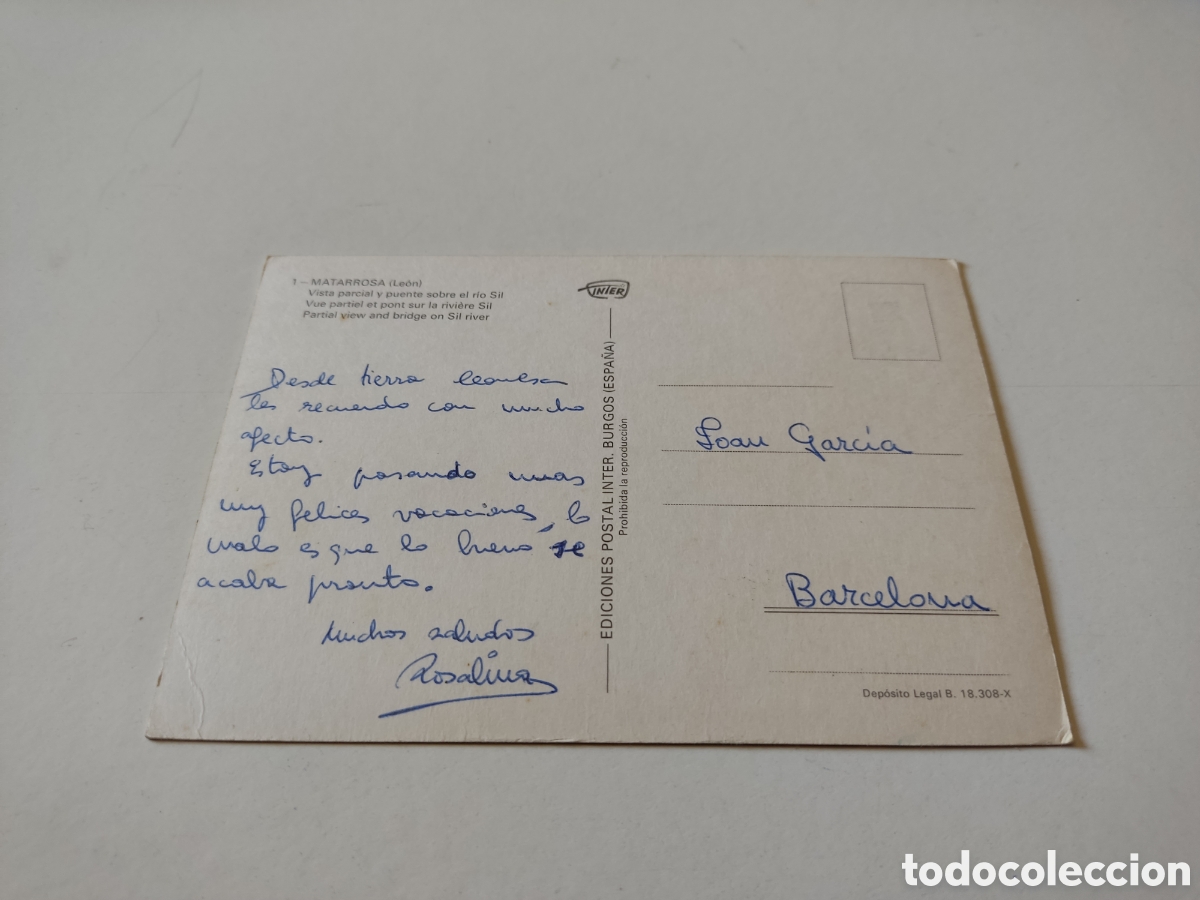 1 - MATARROSA (León)
Vista parcial y puente sobre el río Sil
Vue partiel et pont sur la rivière Sil
Partial view and bridge on Sil river
INTER
Desde tierra leonesa
les recuerdo con mucho
afecto.
Estoy pasando unas
muy felices vacaciones, lo
malo es que lo bueno se
acaba pronto.
Muchos saludos
Rosalina
EDICIONES POSTAL INTER. BURGOS (ESPAÑA)
Prohibida la reproducción
Joan García
Barcelona
Depósito Legal B. 18.308-X
todocoleccion